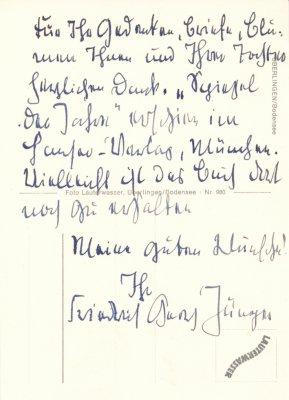 Für Ihr Gedenken, Briefe, Blu-
men Ihnen und Ihrer Tochter
herzlichen Dank. „Spiegel
der Jahre" erschien im
Hanser-Verlag, München.
Vielleicht ist das Buch dort
noch zu erhalten
Meine guten Wünsche!
Ihr
Friedrich Georg Jünger
ÜBERLINGEN/Bodensee
Foto Lauterwasser, Überlingen/Bodensee · Nr. 980
LAUTERWASSER